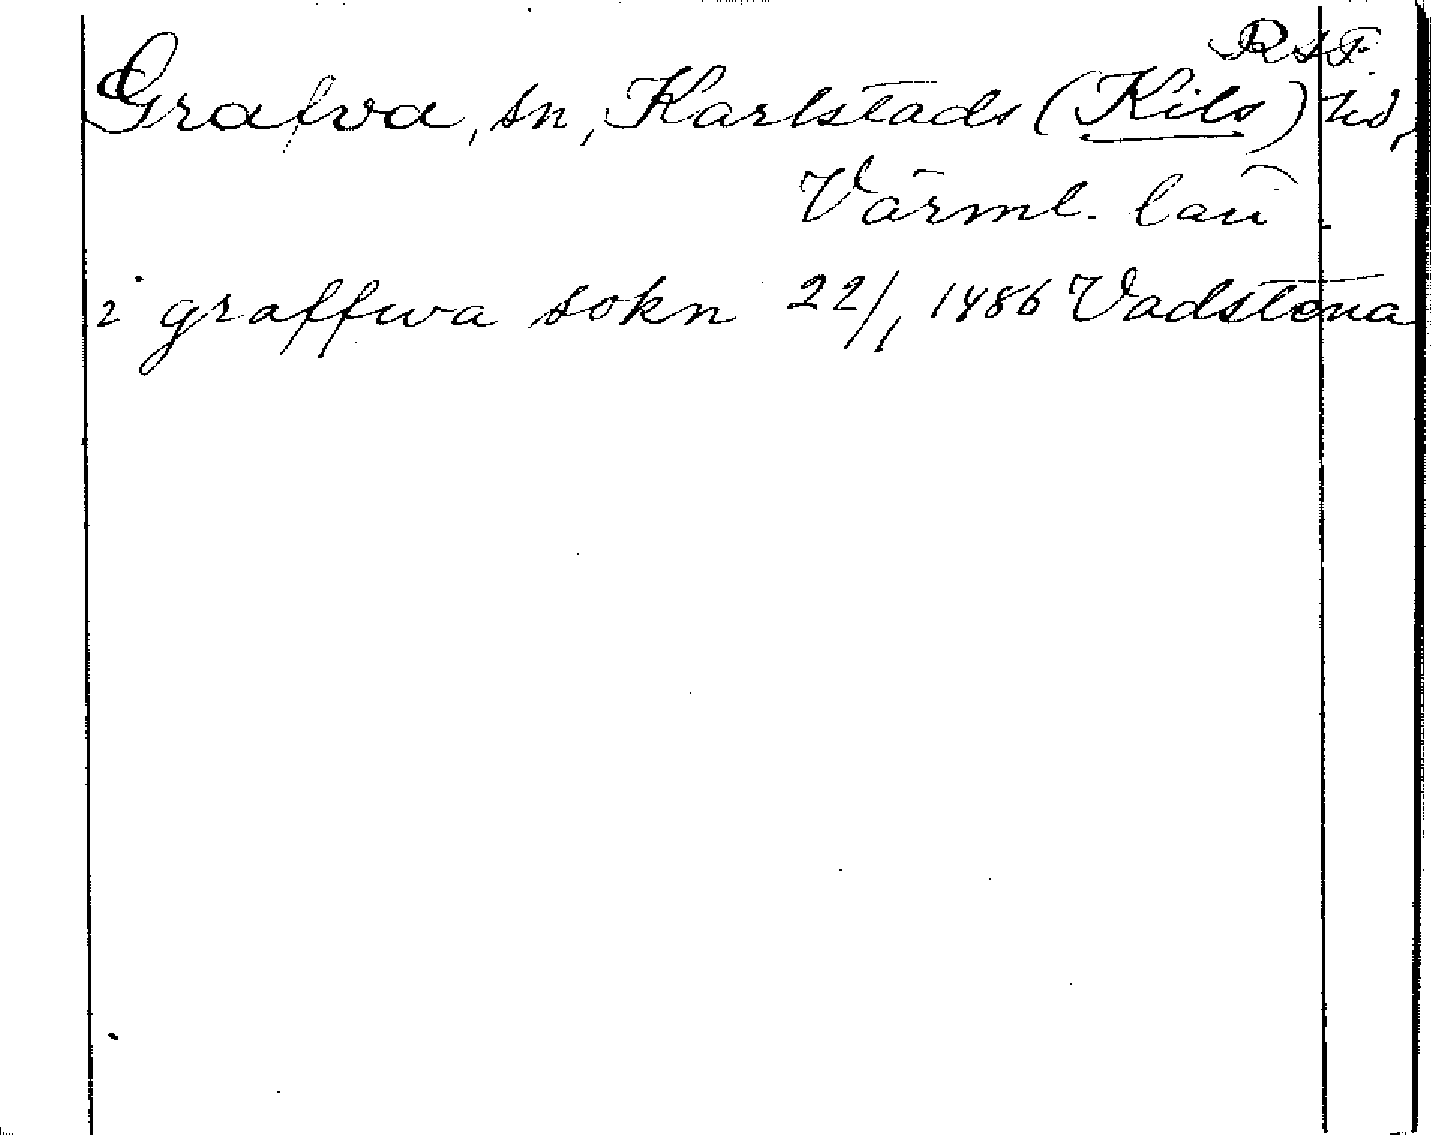 R S F.
Grafva, sn, Karlstads (Kils) hd,
Värml. län
i graffwa sokn 22/1 1486 Vadstena